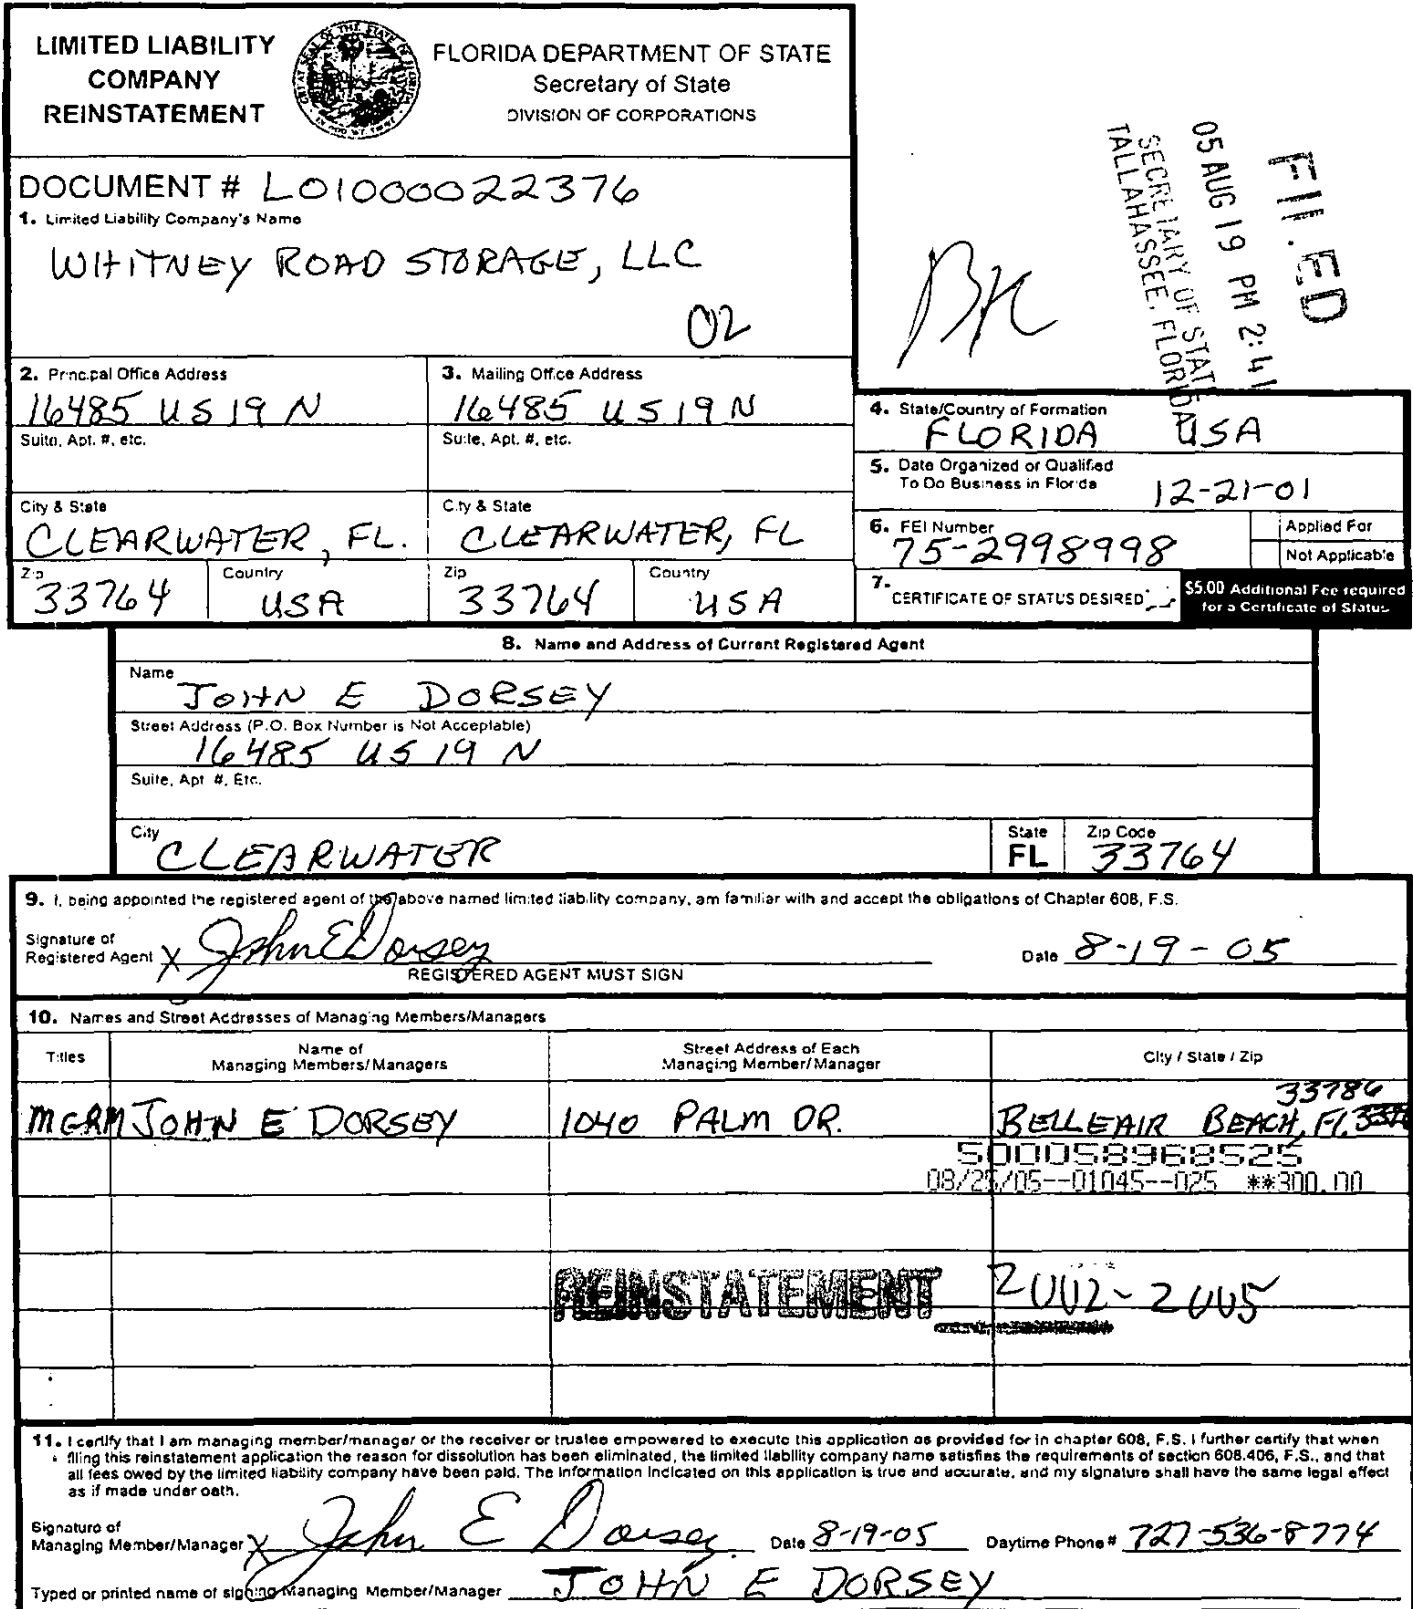 LIMITED LIABILITY
COMPANY
REINSTATEMENT
FLORIDA DEPARTMENT OF STATE
Secretary of State
DIVISION OF CORPORATIONS
FILED
05 AUG 19 PM 2:41
SECRETARY OF STATE
TALLAHASSEE, FLORIDA
DOCUMENT # L01000022376
1. Limited Liability Company's Name
WHITNEY ROAD STORAGE, LLC
02
BK
2. Principal Office Address
16485 US 19 N
Suite, Apt. #, etc.
City & State
CLEARWATER, FL.
Zip
33764
Country
USA
3. Mailing Office Address
16485 US 19 N
Suite, Apt. #, etc.
City & State
CLEARWATER, FL
Zip
33764
Country
USA
4. State/Country of Formation
FLORIDA USA
5. Date Organized or Qualified
To Do Business in Florida
12-21-01
6. FEI Number
75-2998998
Applied For
Not Applicable
7. CERTIFICATE OF STATUS DESIRED
$5.00 Additional Fee required
for a Certificate of Status
8. Name and Address of Current Registered Agent
Name
JOHN E DORSEY
Street Address (P.O. Box Number is Not Acceptable)
16485 US 19 N
Suite, Apt #, Etc.
City
CLEARWATER
State
FL
Zip Code
33764
9. I, being appointed the registered agent of the above named limited liability company, am familiar with and accept the obligations of Chapter 608, F.S.
Signature of
Registered Agent X John E Dorsey
Date 8-19-05
REGISTERED AGENT MUST SIGN
10. Names and Street Addresses of Managing Members/Managers
Titles
Name of
Managing Members/Managers
Street Address of Each
Managing Member/Manager
City / State / Zip
33786
MGRM JOHN E DORSEY 1040 PALM DR. BELLEAIR BEACH, FL
500058968525
08/25/05--01045--025 **300.00
REINSTATEMENT 2002-2005
11. I certify that I am managing member/manager or the receiver or trustee empowered to execute this application as provided for in chapter 608, F.S. I further certify that when
filing this reinstatement application the reason for dissolution has been eliminated, the limited liability company name satisfies the requirements of section 608.406, F.S., and that
all fees owed by the limited liability company have been paid. The information indicated on this application is true and accurate, and my signature shall have the same legal effect
as if made under oath.
Signature of
Managing Member/Manager X John E Dorsey Date 8-19-05 Daytime Phone # 727-536-8774
Typed or printed name of signing Managing Member/Manager JOHN E DORSEY